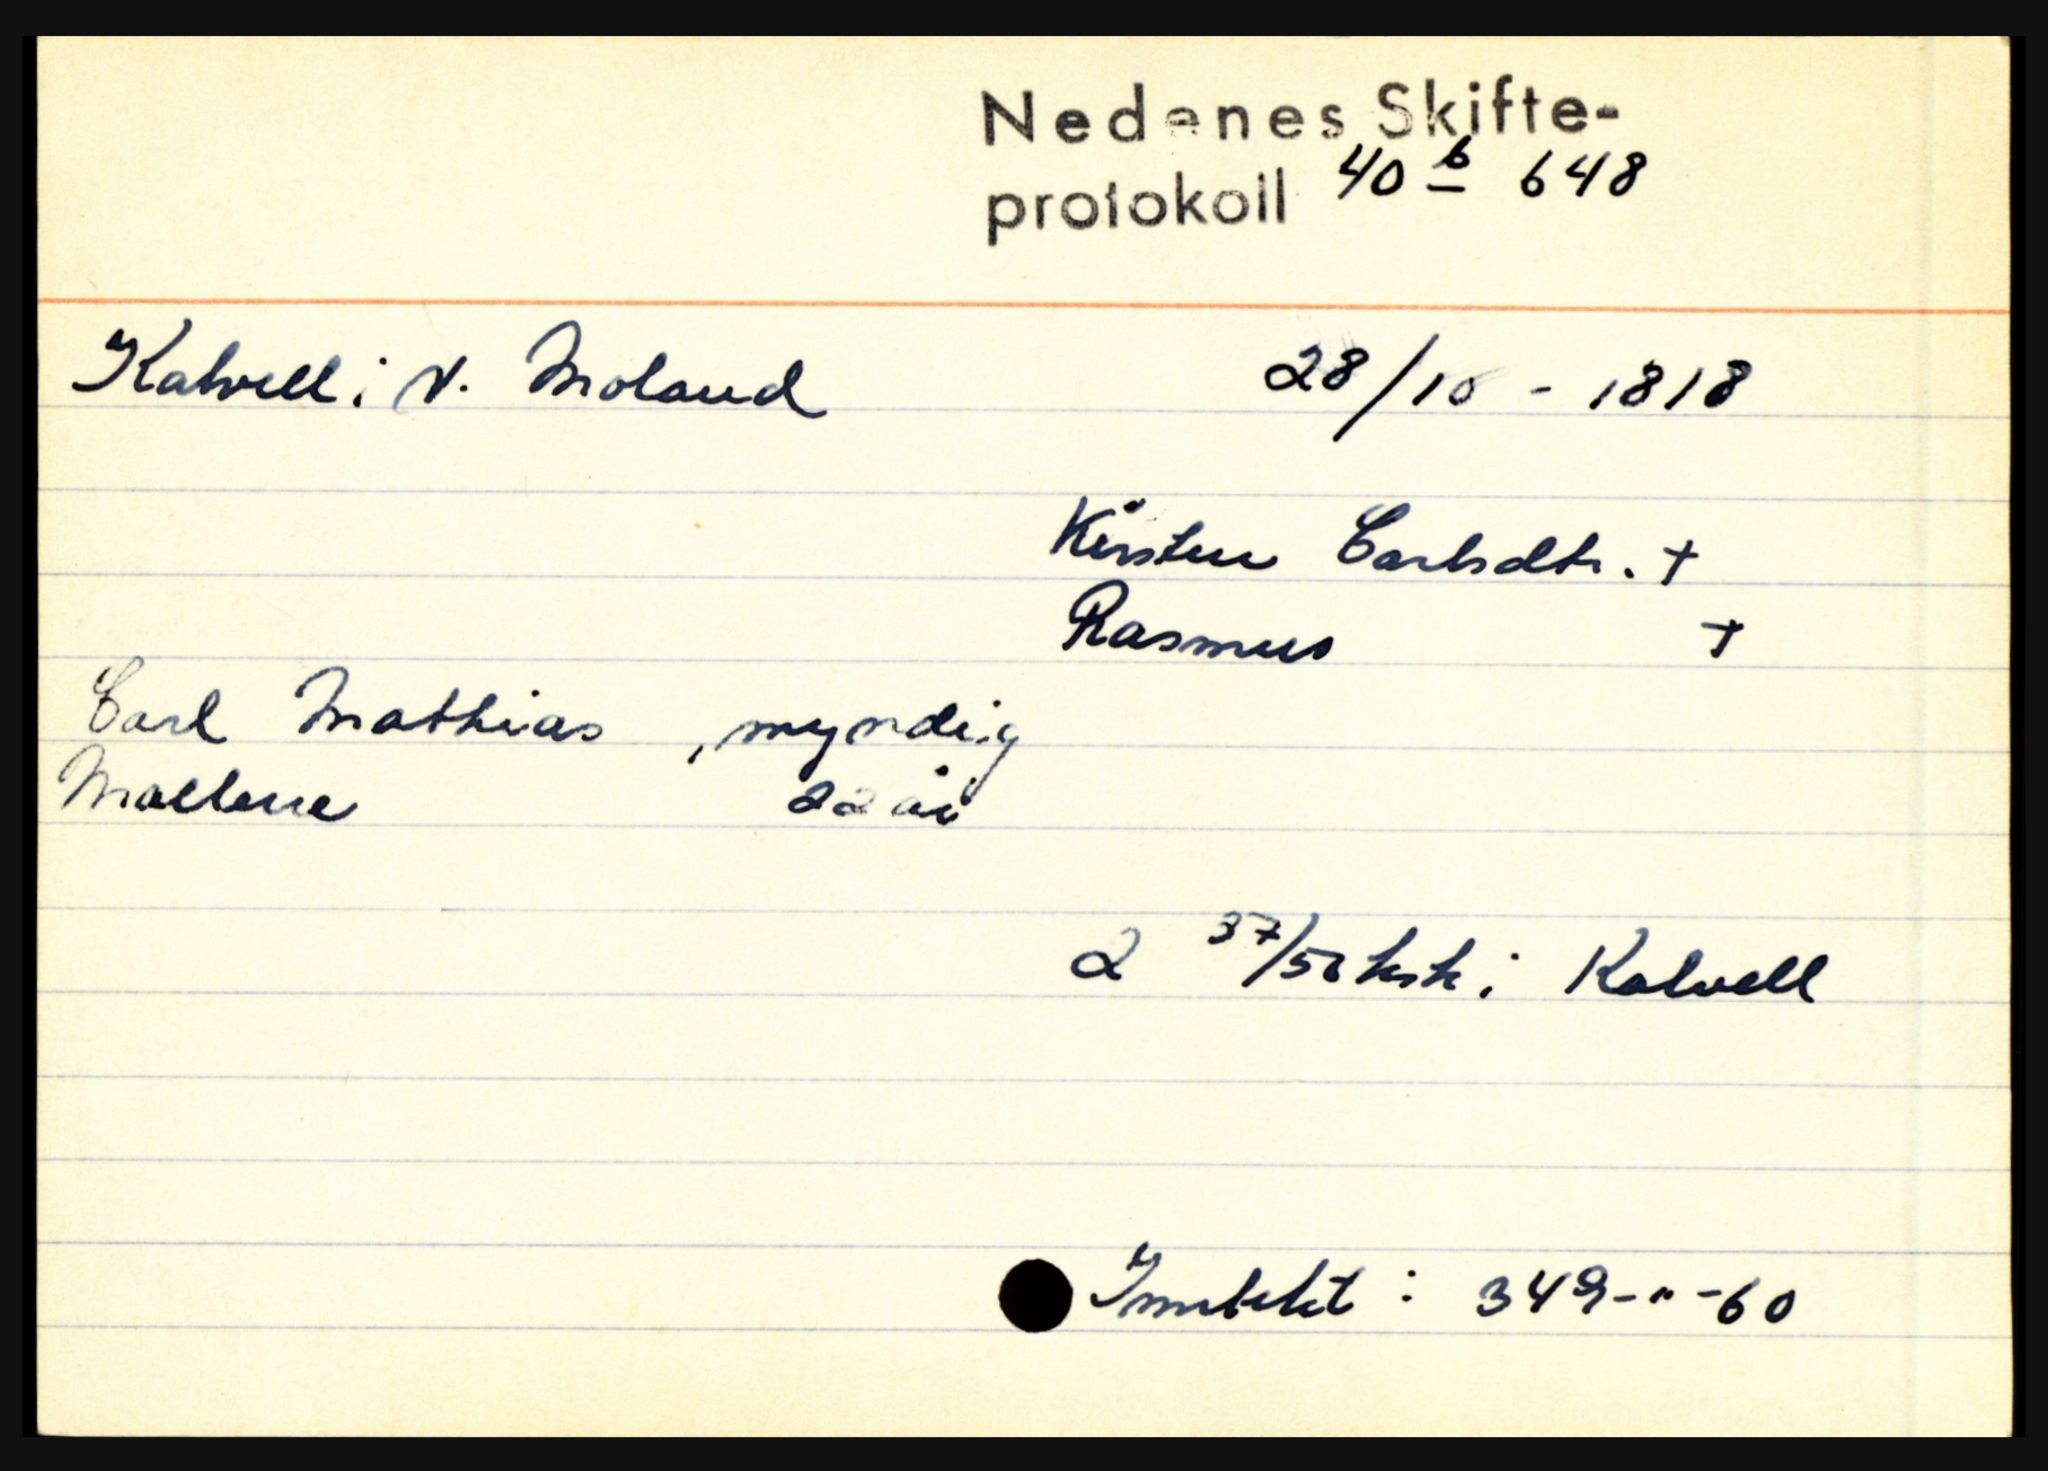 Nedenes Skifte-
protokoll 40 b 648
Kalvell i V. Moland 28/10 - 1818
Kirsten Carlsdtr. +
Rasmus +
Carl Mathias , myndig
Mallene 22 år
2 37/50 ksk i Kalvell
Inntekt : 349-"-60